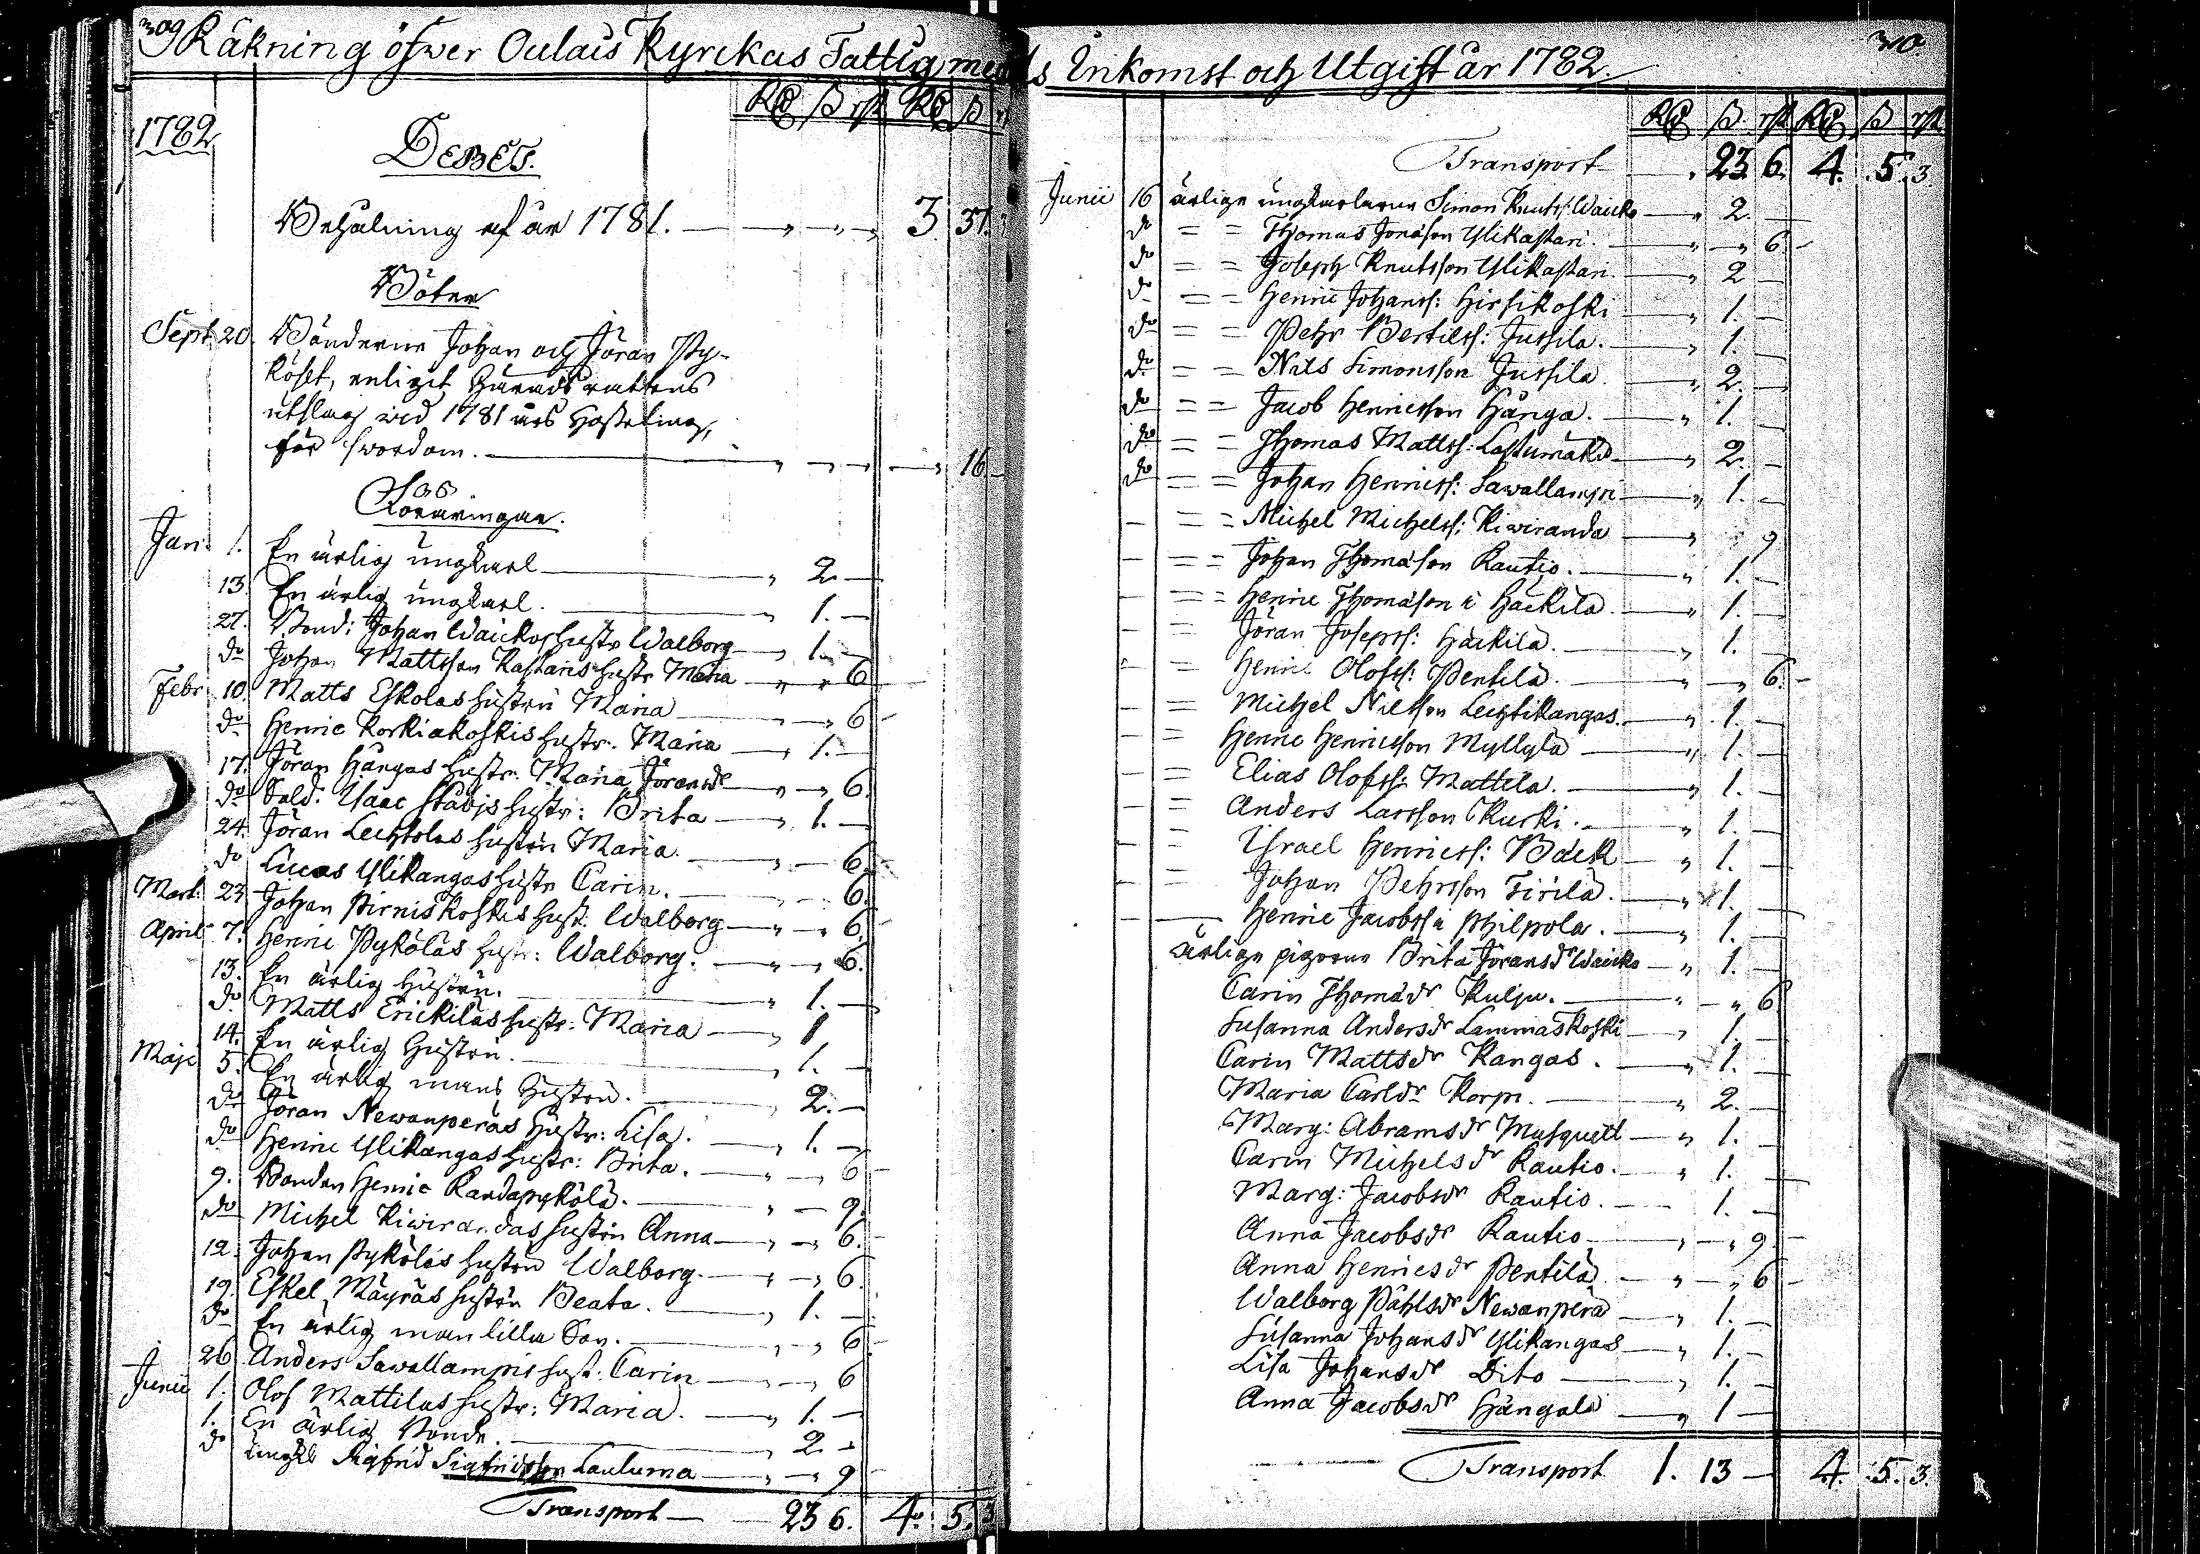 309 Räkning öfwer Oulais Kyrckas Fattigmedels Inkomst och Utgift år 1782. 310.
Rd ß rst Rd ß
1782
DEBET.
Behålning af år 1781. — „ — „ — 3. 37.
Böter
Sept. 20. Bönderne Johan och Jöran Py-
köset, enligit Häradsrättens
utslag wid 1781 års Hösteting,
för swordom. — „ — „ — „ 16. —
Håf
Roraringar.
Jan: 1. En ärlig ungkarl — „ 2. —
13. En ärlig ungkarl. — „ 1. —
27. Bond: Johan Waickos hustr Walborg — „ 1. —
do Johan Mattsson Kastaris hustr Maria — „ „ 6
Febr: 10. Matts Eskolas hustru Maria — „ 6 —
do Henric Korkiakoskis hustr. Maria — „ 1. —
17. Jöran Hångas hustr: Maria Jöransdr — „ — „ 6.
do Sold: Isaac Stubjs hustr: Brita — „ 1. —
24. Jöran Lechtolas hustru Maria. — „ — 6. —
do Lucas Ylikangas hustr Carin. — 6.
Mart: 23. Johan Pirniskoskis hust: Walborg — „ — „ 6.
April 7. Henric Pyköläs hustr: Walborg. — „ — „ 6.
13. En ärlig hustru. — „ 1. —
do Matts Erickiläs hustr: Maria — „ 1
14. En ärlig hustru. — „ 1. —
Maji 5. En ärlig mans hustru. — „ 2. —
do Jöran Newanperäs hustr: Lisa. — „ 1. —
do Henric Ylikangas hustr: Brita. — „ — „ 6 —
9. Bonden Henric Randapykölä. — „ — 9.
do Michel Kiwirandas hustru Anna — „ — „ 6. —
12. Johan Pyköläs hustru Walborg. — „ — „ 6.
19. Eskel Mäyräs hustru Beata. — „ 1. —
do En ärlig man lilla Son. — „ 6. —
26 Anders Sawallampis hust: Carin — „ — „ 6
Junii 1. Olof Mattilas hustr: Maria. — „ 1. —
1. En ärlig Bonde. — „ 2 —
do Sigfrid Sigfridsson Lauluma — „ — „ 9 —
Transport — 23 6. 4. 5. 3
Rd ß rst Rd ß rst
Transport — . 23. 6. 4. 5. 3.
Junii 16 ärlige ungkarlarne Simon Knuts: Waicko — „ 2. —
do = = Thomas Jonasson Ylikastari. — „ — „ 6 —
do = = Joseph Knutsson Ylikastari. — „ 2 —
do = = Henric Johanss: Hirsikoski — „ 1. —
do = = Pehr Bertilss: Jussila. — „ 1. —
do = = Nils Simonsson Jussila — „ 2. —
do = = Jacob Henricsson Hånga. — „ 1. —
do = = Thomas Mattss: Lastumäki — „ 2. —
do = = Johan Henricss: Sawallampi — „ 1. —
— = = Michel Michelss: Kiwiranda — „ 9
— = = Johan Thomasson Rautio. — „ 1. —
— = = Henric Thomasson i Häckilä. — „ 1. —
— = Jöran Josepss: Häckilä. — „ 1. —
— = Henric Olofss: Pentilä. — „ — „ 6. —
— = Michel Nilsson Lechtikangas. — „ 1. —
— = Henric Henricsson Myllylä — „ 1. —
— = Elias Olofss: Mattila. — „ 1. —
— = Anders Larsson Kurki. — „ 1. —
— = Israel Henricss: Bäck — „ 1. —
— = Johan Pehrsson Tirilä. — „ 1. —
— — Henric Jacobss i Philpola. — „ 1. —
ärlige pigorne Brita Jöransdr Waicko — „ 1. —
Carin Thomasdr Kulju. — „ — „ 6
Susanna Andersdr Lammaskoski — „ 1. —
Carin Mattsdr Kangas. — „ 1. —
Maria Carlsdr Korpi. — „ 2. —
Marg: Abramsdr Musquett — „ 1. —
Carin Michelsdr Rautio. — „ 1. —
Marg: Jacobsdr Rautio. — 1. —
Anna Jacobsdr Rautio — „ — „ 9 —
Anna Henricsdr Pentilä — „ — „ 6 —
Walborg Påhlsdr Newanperä — „ 1. —
Susanna Johansdr Ylikangas — „ 1. —
Lisa Johansdr Dito — „ 1. —
Anna Jacobsdr Hångala — „ 1 —
Transport 1. 13 — 4. 5. 3.